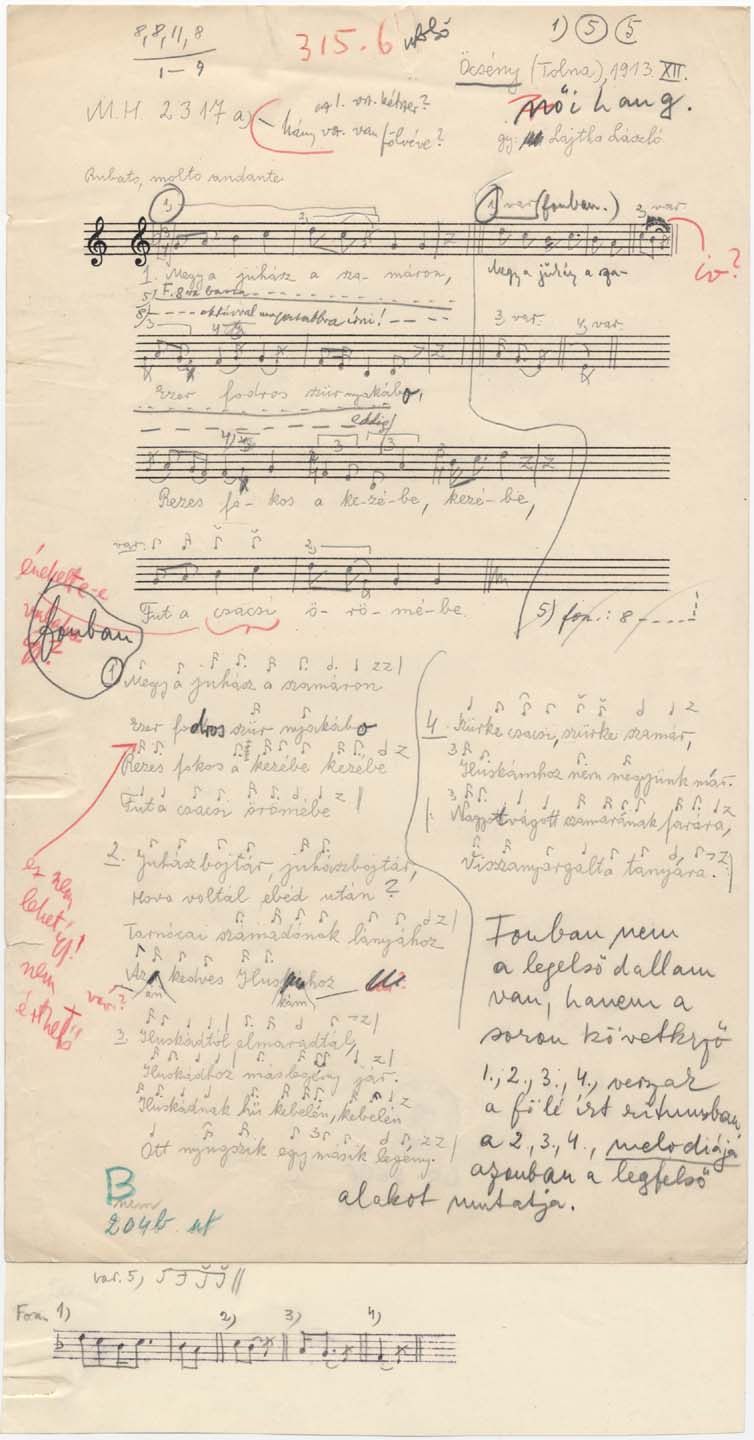 8, 8, 11, 8
1–9
315.6 utolsó
1) 5 5
Öcsény (Tolna), 1913. XII.
női hang.
M.H. 2317 a)
hány vsz. van fölvéve?
gy: Lajtha László
Rubato, molto andante
1, 2, 1) var (fonban.) 2, var.
ív?
1. Megy a juhász a sza- máron,
Megy a juhász a sza-
5) F. 8
8) oktávval magasabbra írni!
3 4, 3, var. 4, var.
Ezer fodros szür nyakábo,
eddig!
4) 3 3
Rezes fo- kos a ke-zé-be, kezé-be,
var. 2,
Fut a csacsi ö- rö- mé-be
5) fon.: 8
énekelte-e
fonban
1
Megy a juhász a szamáron
Ezer fodros szür nyakábo
Rezes fokos a kezébe kezébe
Fut a csacsi örömébe
ez nem
lehet így!
nem
érthető
2. Juhászbojtár, juhászbojtár,
Hova voltál ebéd után?
Tarnócai számadónak lányához
Az kedves Ilus hoz
án kám
var?
3. Iluskádtól elmaradtál,
Iluskádhoz más legény jár.
Iluskádnak hű kebelén, kebelén
Ott nyugszik egy másik legény.
4. Szürke csacsi, szürke szamár,
Iluskámhoz nem megyünk már.
Nagyot vágott szamarának farára,
Visszanyargalta tányára.
Fonban nem
a legelső dallam
van, hanem a
soron következő
1., 2., 3., 4., verszak
a fölé írt ritmusban,
a 2., 3., 4., melodiája
azonban a legfelső
alakot mutatja.
B
nem
204b. ut
var. 5)
Fon. 1) 2) 3) 4)